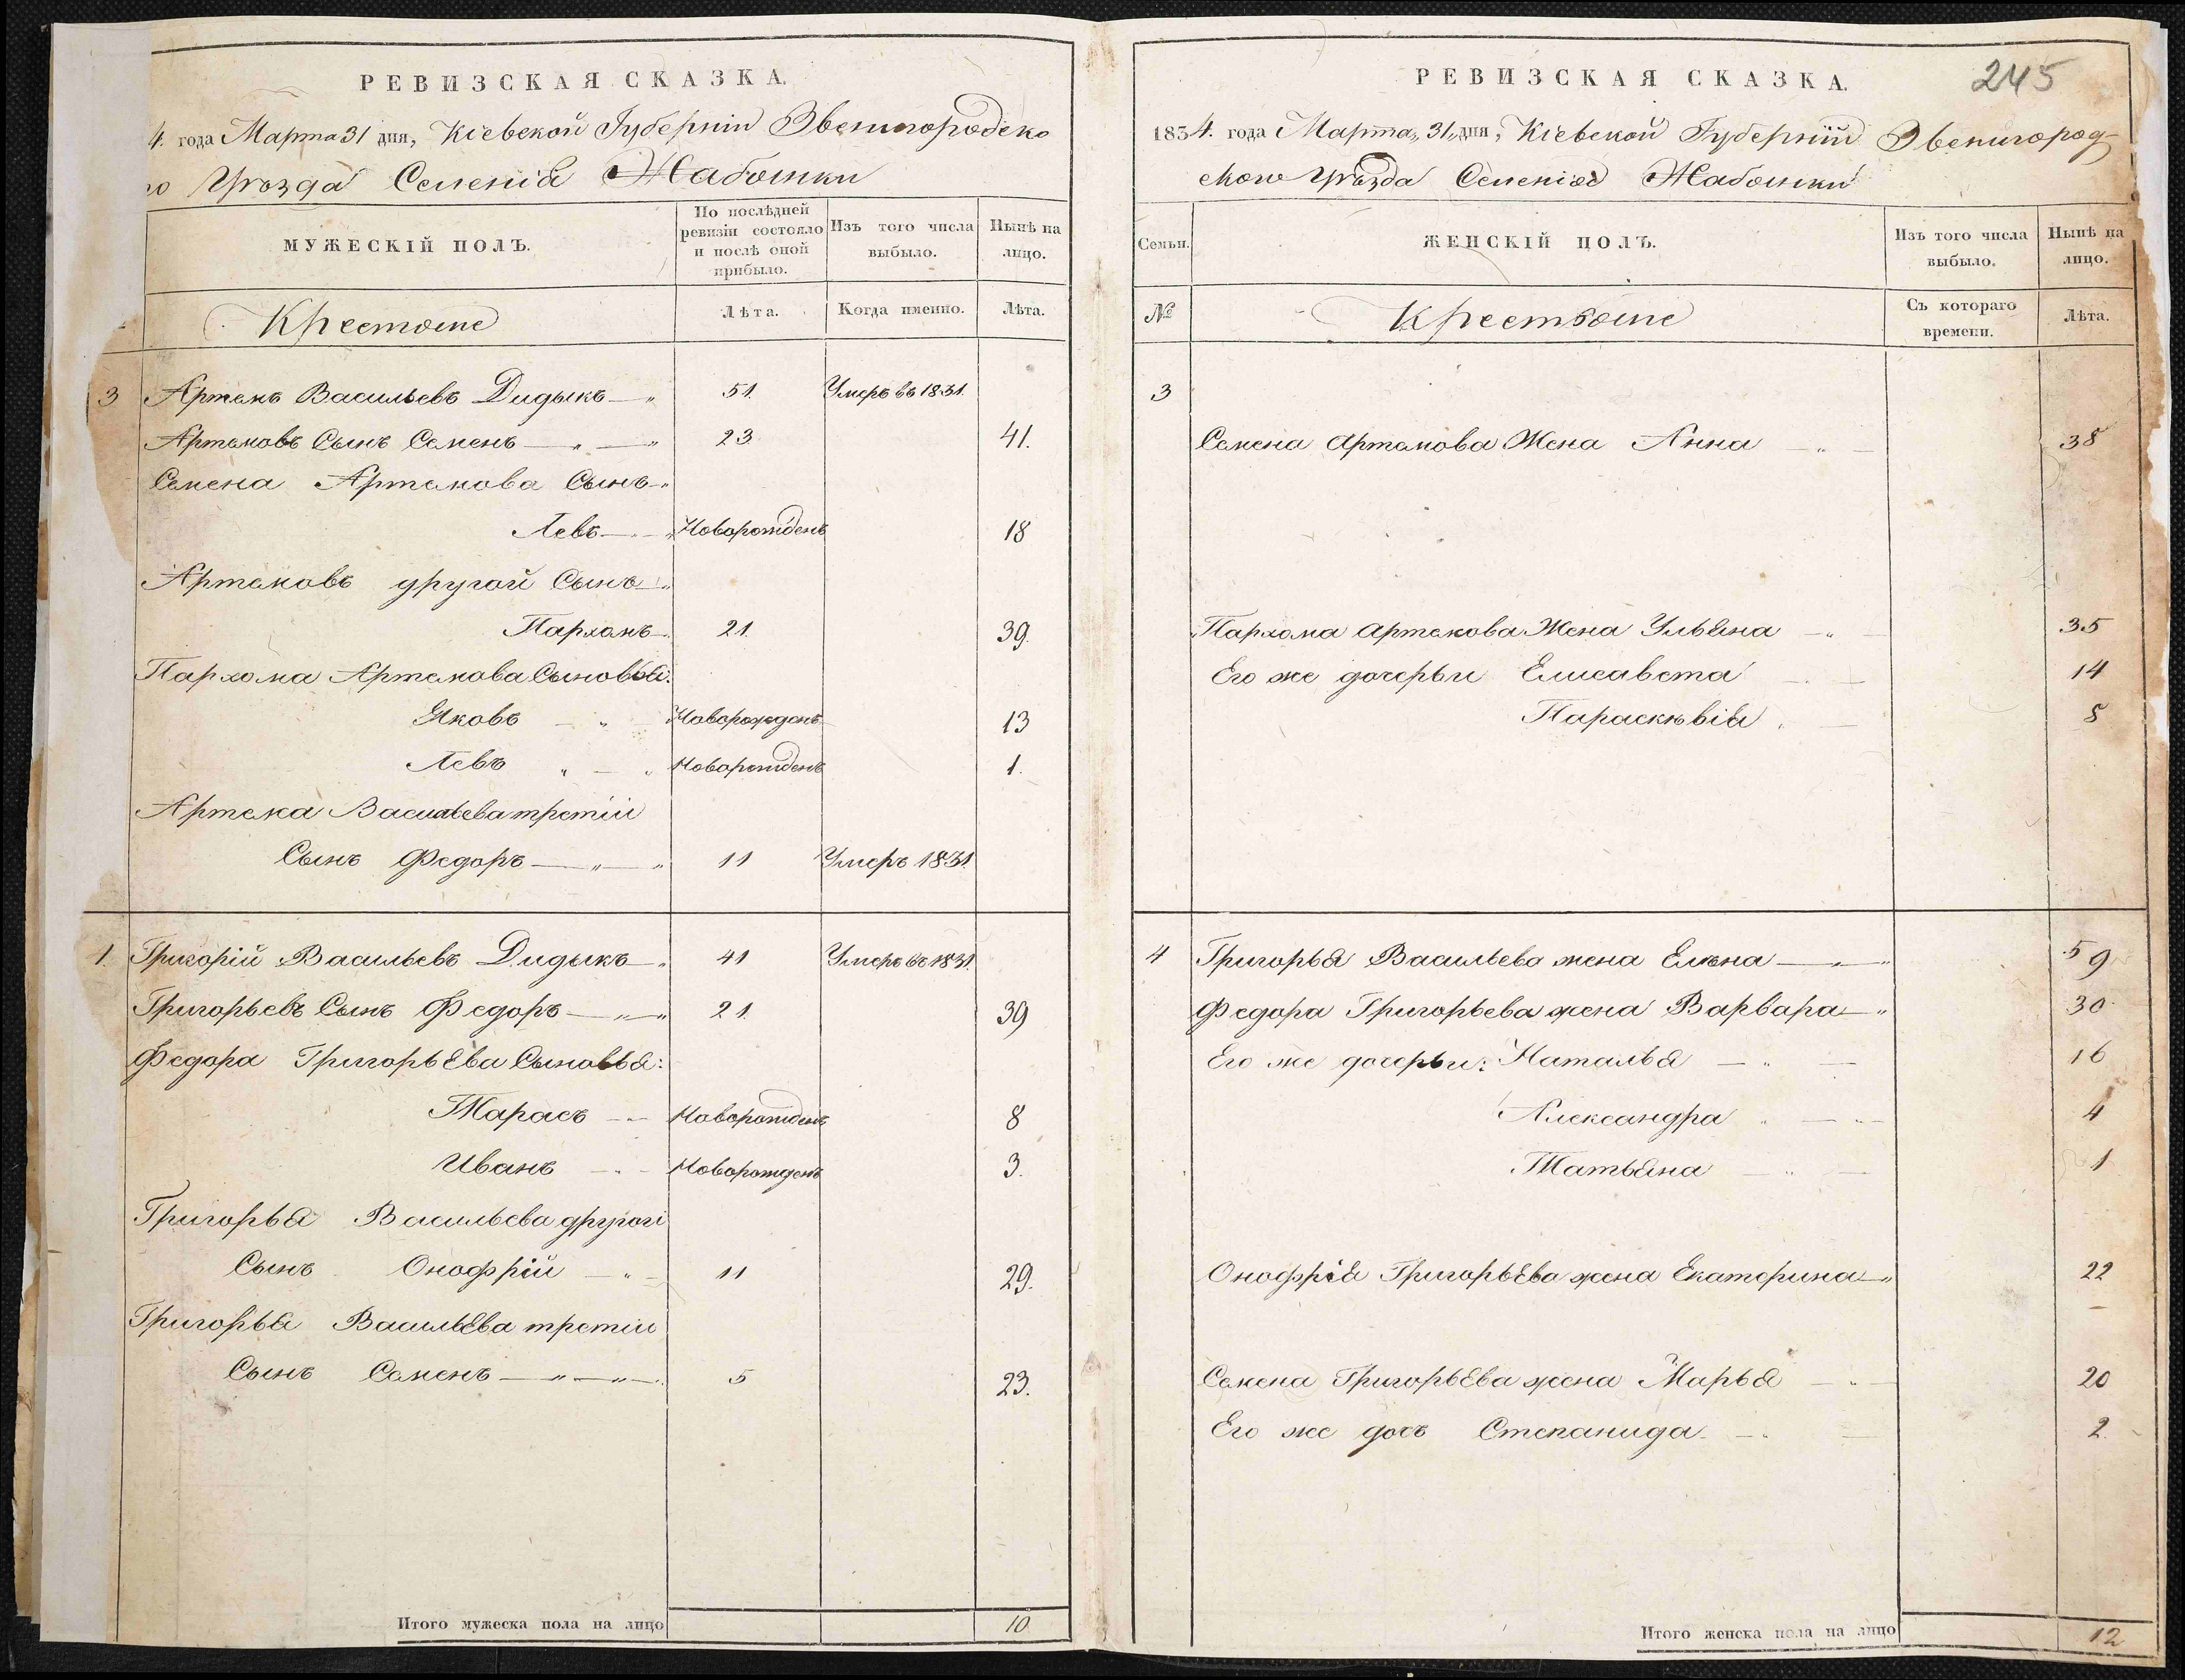 РЕВИЗСКАЯ СКАЗКА.
4. года Марта 31 дня, Кіевской Губерніи Звенигородско
го Уѣзда Селенія Жабошки
МУЖЕСКІЙ ПОЛЪ.
По послѣдней ревизіи состояло и послѣ оной прибыло.
Изъ того числа выбыло.
Нынѣ на лицо.
Крестьяне
Лѣта.
Когда именно.
Лѣта.
3 Артемъ Васильевъ Дидыкъ 51. Умеръ въ 1831.
Артемовъ Сынъ Семенъ 23 41.
Семена Артемова Сынъ
Левъ Новорожденъ 18
Артемовъ другой Сынъ
Пархомъ 21. 39.
Пархома Артемова Сыновья:
Яковъ Новорожденъ 13
Левъ Новорожденъ 1.
Артема Васильева третій
Сынъ Федоръ 11 Умеръ 1831
Григорій Васильевъ Дидыкъ 41 Умеръ въ 1831.
Григорьевъ Сынъ Федоръ 21. 39
Федора Григорьева Сыновья:
Тарасъ Новорожденъ 8
Иванъ Новорожденъ 3.
Григорья Васильева другой
Сынъ Онофрій 11 29.
Григорья Васильева третій
Сынъ Семенъ 5 23.
Итого мужеска пола на лицо 10
РЕВИЗСКАЯ СКАЗКА.
245
1834. года Марта „31„ дня, Кіевской Губерніи Звенигород-
скаго Уѣзда Селенія Жабошки
Семьи.
ЖЕНСКІЙ ПОЛЪ.
Изъ того числа выбыло.
Нынѣ на лицо.
№
Крестьяне
Съ котораго времени.
Лѣта.
3
Семена Артемова Жена Анна 38
Пархома Артемова Жена Ульяна 35
Его же дочерьи Елисавета 14
Параскѣвія 8
4 Григорья Васильева жена Елена 59
Федора Григорьева жена Варвара 30
Его же дочерьи: Наталья 16
Александра 4
Татьяна 1
Онофрія Григорьева жена Екатерина 22
Семена Григорьева жена Марья 20
Его же дочъ Степанида 2
Итого женска пола на лицо 12